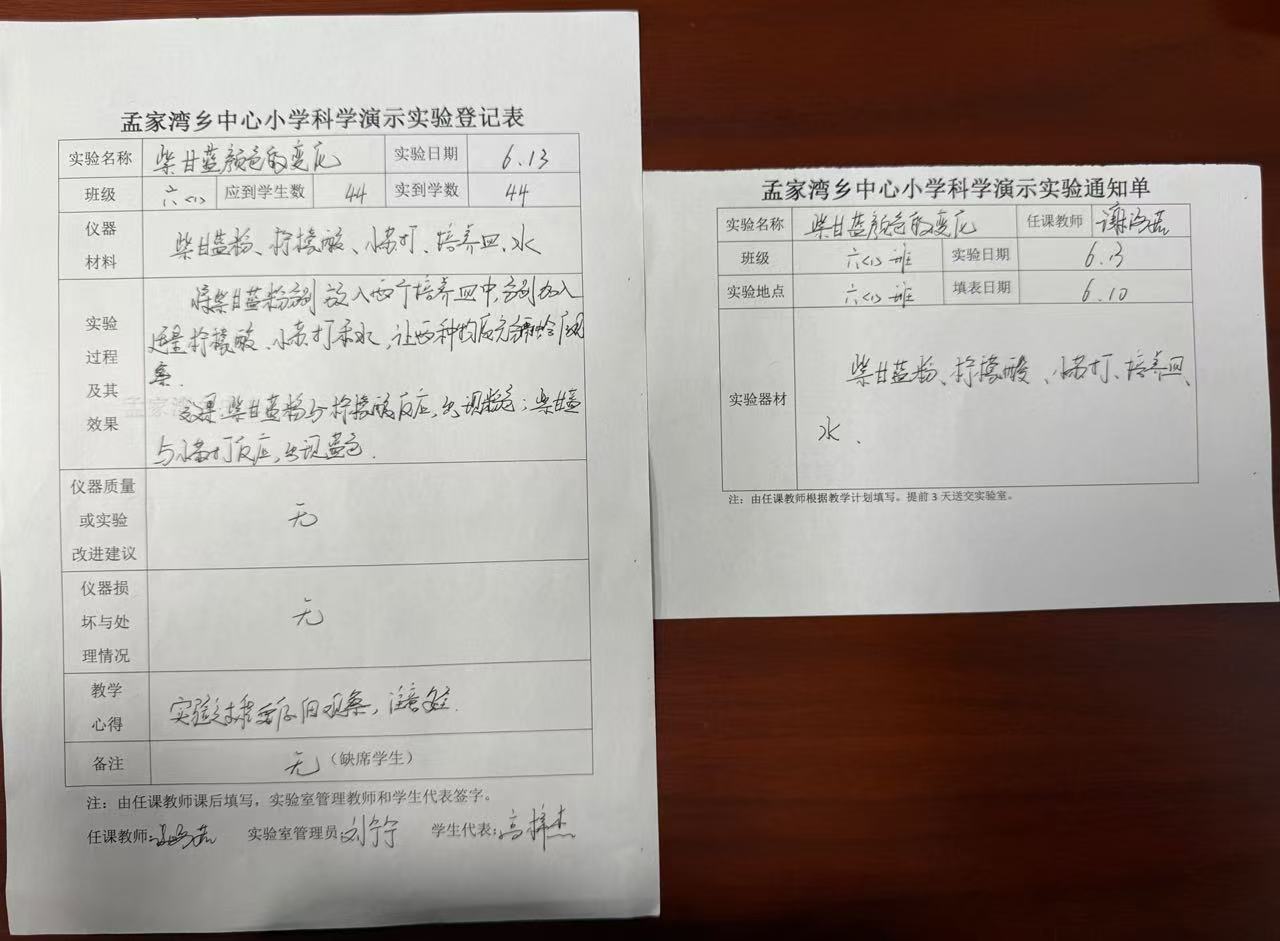 孟家湾乡中心小学科学演示实验登记表
实验名称 紫甘蓝颜色的变化 实验日期 6.13
班级 六(1) 应到学生数 44 实到学数 44
仪器材料 紫甘蓝粉、柠檬酸、小苏打、培养皿、水
实验过程及其效果
将紫甘蓝粉分别放入两个培养皿中,分别加入
适量柠檬酸、小苏打和水,让两种物质充分
象.
效果:紫甘蓝粉与柠檬酸反应,出现粉色;紫甘蓝
与小苏打反应,出现蓝色.
仪器质量或实验改进建议 无
仪器损坏与处理情况 无
教学心得 实验过程要仔细观察,注意安全.
备注 无(缺席学生)
注:由任课教师课后填写,实验室管理教师和学生代表签字。
任课教师: 实验室管理员:刘宁宁 学生代表:高梓杰
孟家湾乡中心小学科学演示实验通知单
实验名称 紫甘蓝颜色的变化 任课教师 谢
班级 六(1)班 实验日期 6.13
实验地点 六(1)班 填表日期 6.10
实验器材 紫甘蓝粉、柠檬酸、小苏打、培养皿、
水.
注:由任课教师根据教学计划填写。提前3天送交实验室。